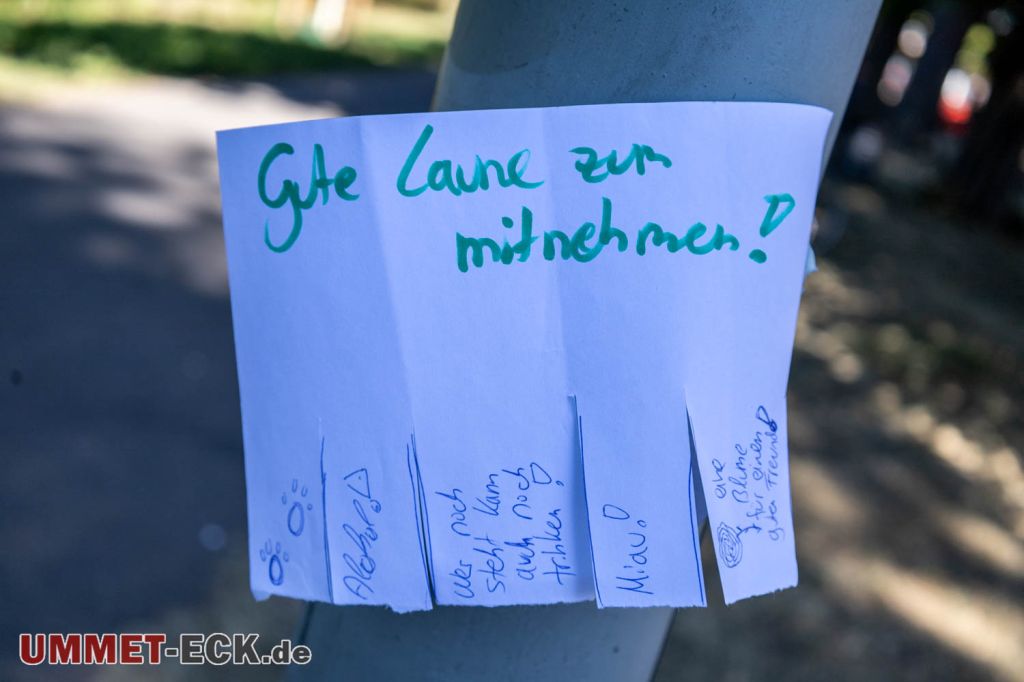 Gute Laune zum
mitnehmen!
Wer noch
steht kann
auch noch
trinken!
Miau!
eine
Blume
für einen
guten Freund
UMMET-ECK.de